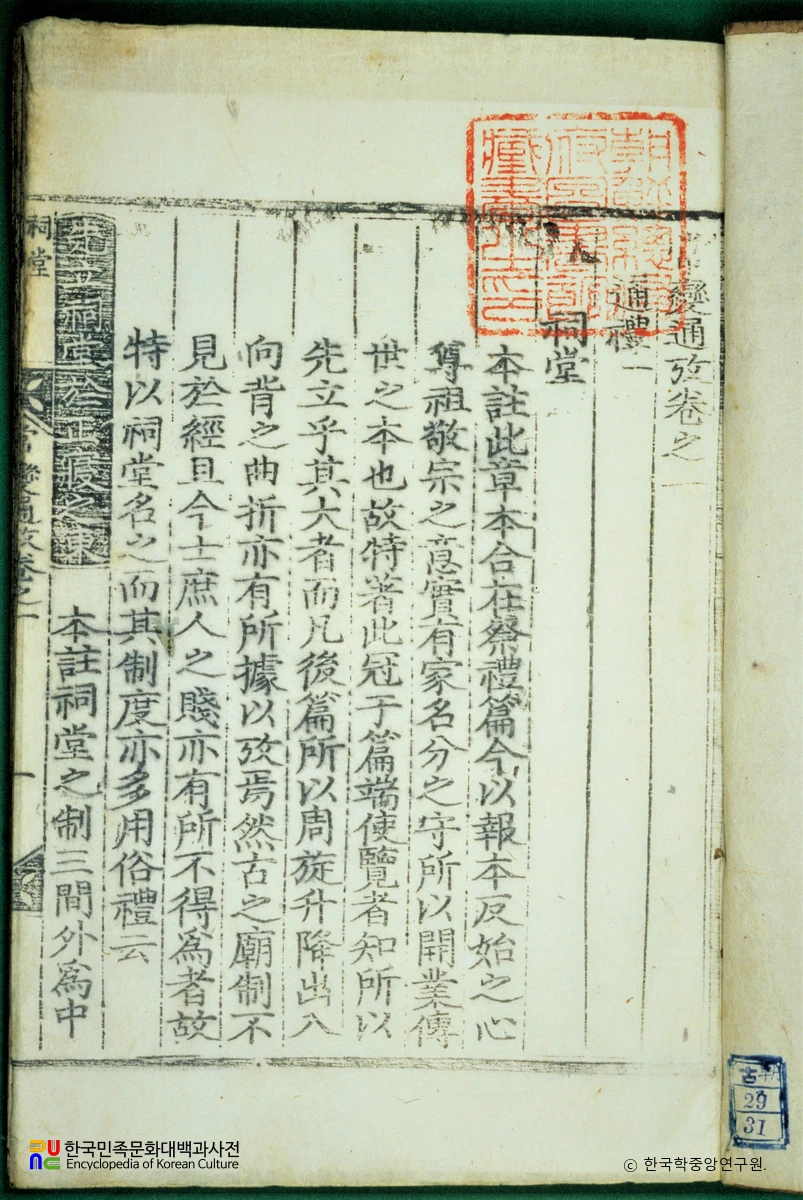 常變通攷卷之一
通禮一
祠堂
本註此章本合在祭禮篇今以報本反始之心
尊祖敬宗之意實有家名分之守所以開業傳
世之本也故特著此冠于篇端使覽者知所以
先立乎其大者而凡後篇所以周旋升降出入
向背之曲折亦有所據以攷焉然古之廟制不
見於經且今士庶人之賤亦有所不得爲者故
特以祠堂名之而其制度亦多用俗禮云
君子將營宮室先立祠堂於正寢之東
本註祠堂之制三間外爲中
祠堂
常變通攷卷之一
一
朝鮮總督府圖書館藏書之印
古朝
29
31
한국민족문화대백과사전
Encyclopedia of Korean Culture
© 한국학중앙연구원.